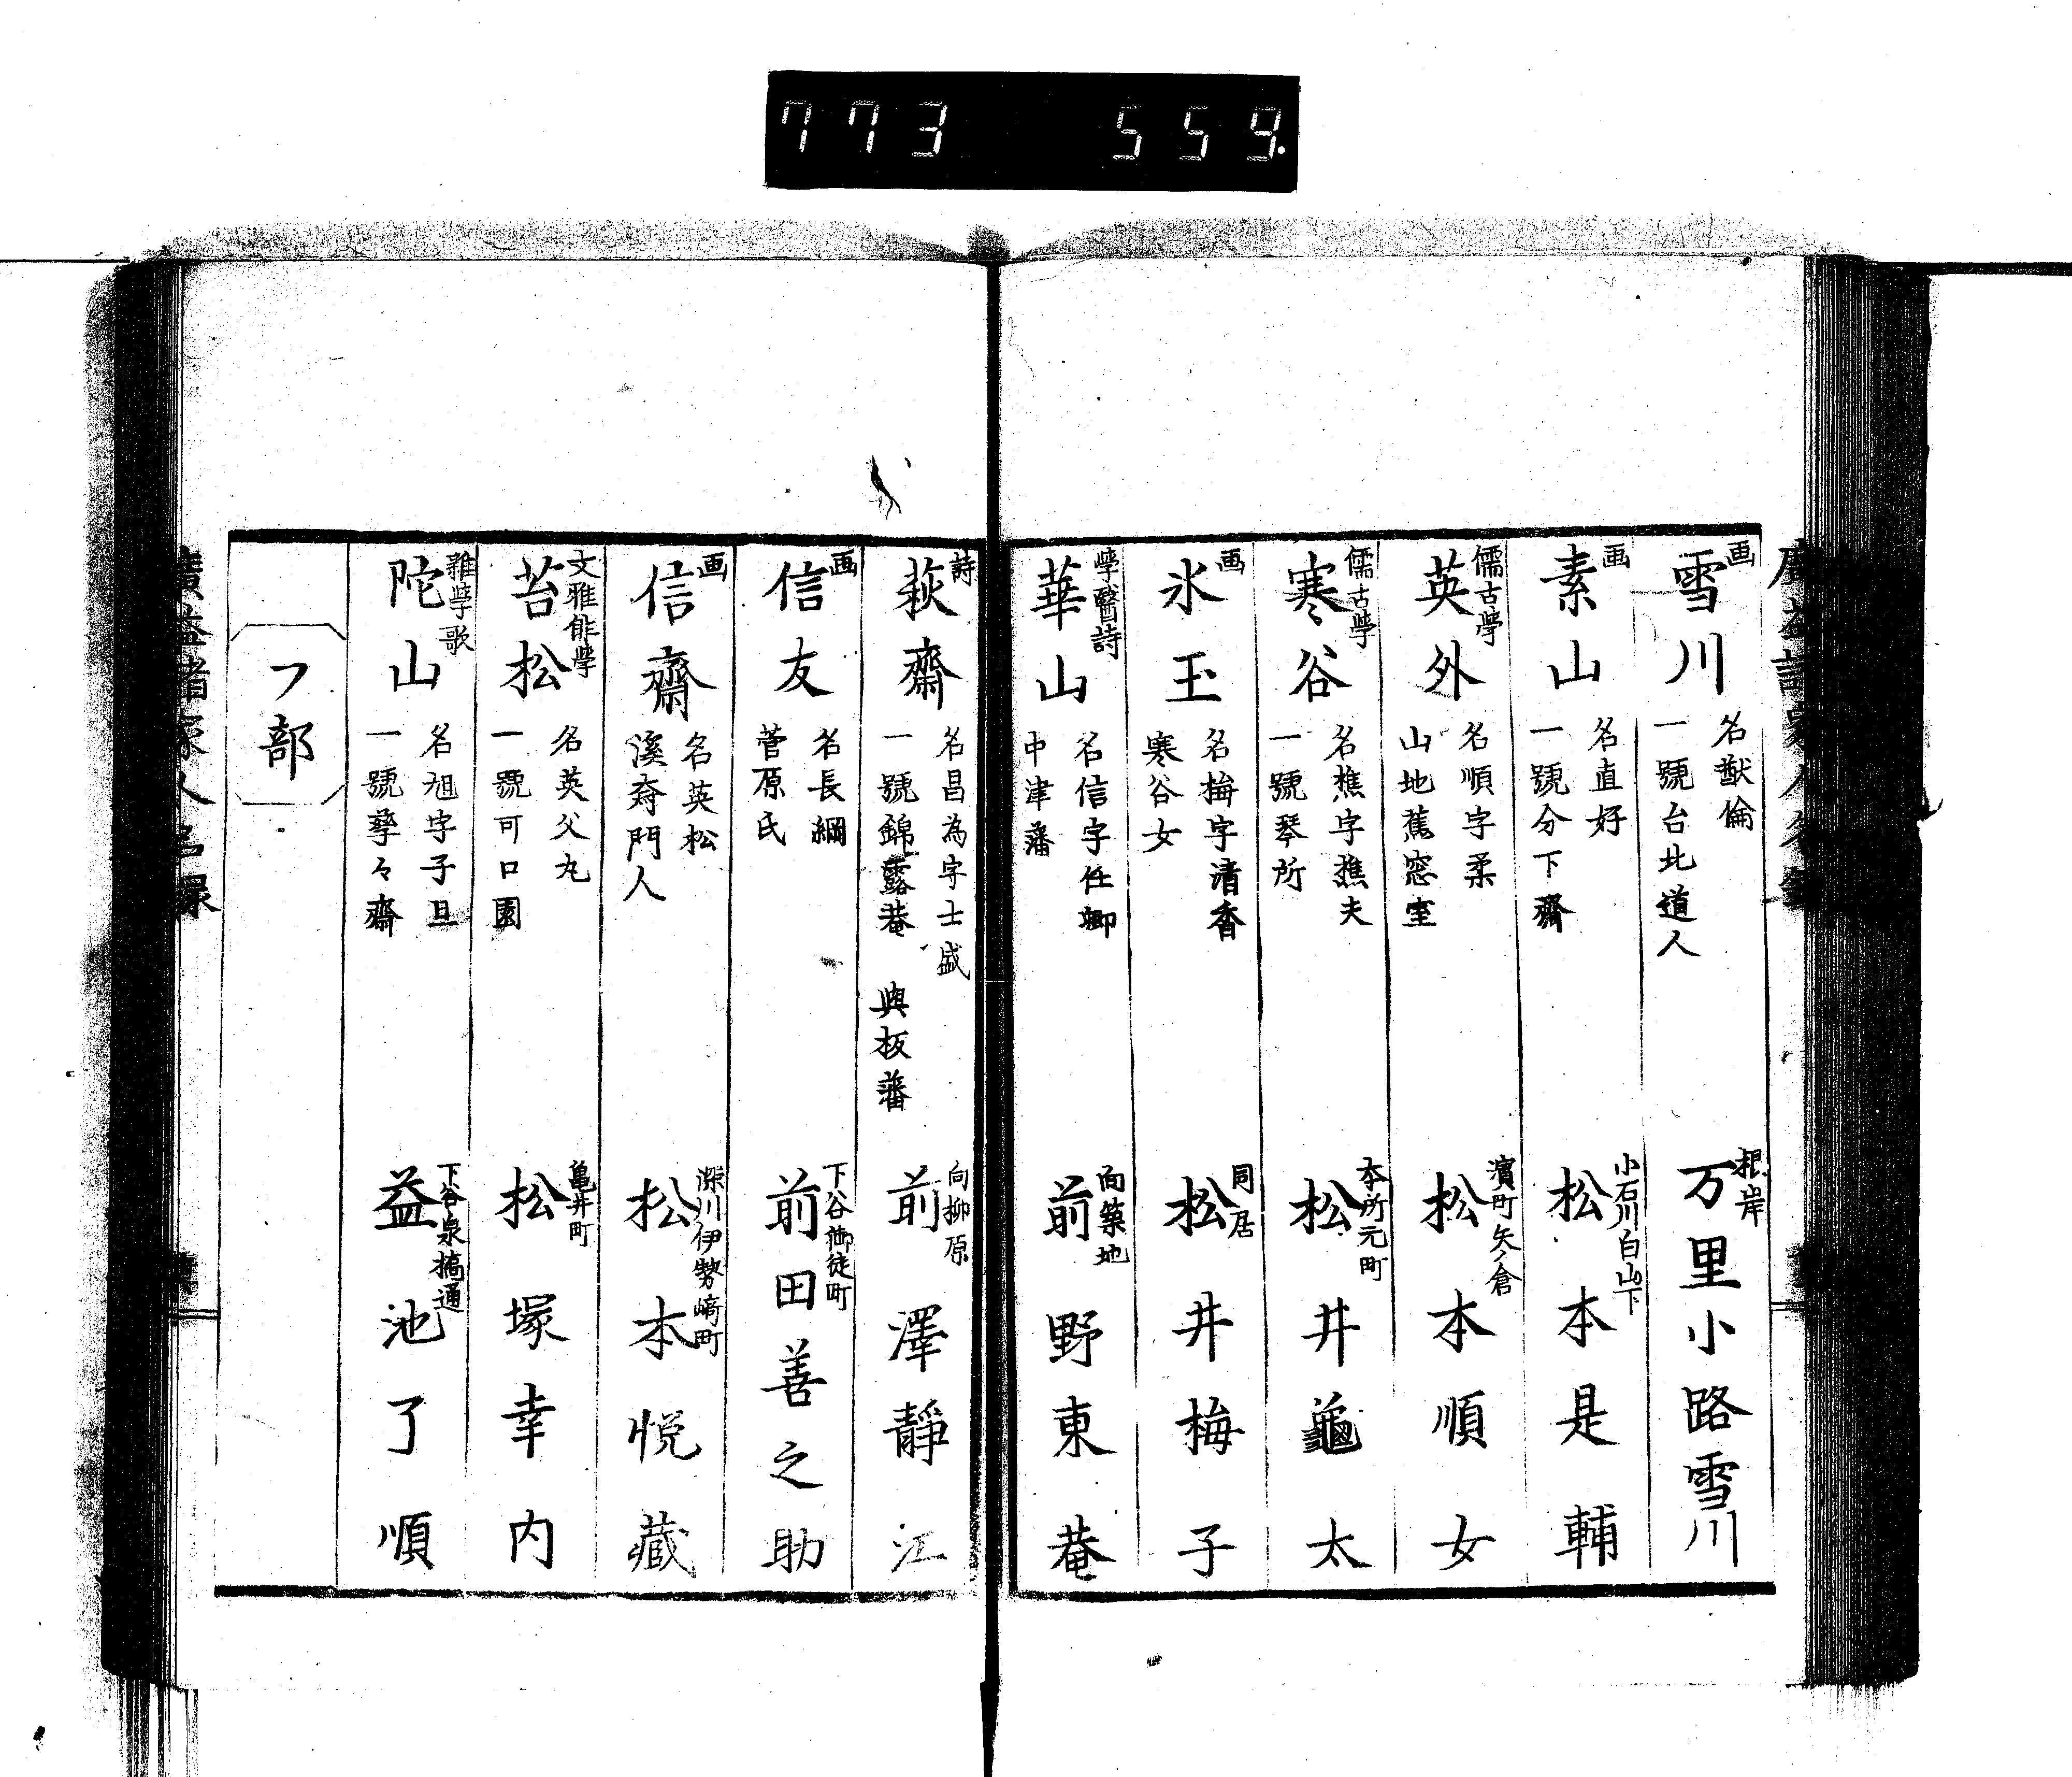 773 559.
画
雪川
名猷倫
一號台北道人
根岸
万里小路雪川
画
素山
名直好
一號分下齋
小石川白山下
松本是輔
儒古學
英外
名順字柔
山地蕉窓室
濱町矢ノ倉
松本順女
儒古學
寒谷
名樵字樵夫
一號琴所
本所元町
松井龜太
画
氷玉
名梅字清香
寒谷女
同居
松井梅子
學醫詩
華山
名信字任卿
中津藩
南築地
前野東菴
詩
萩齋
名昌為字士盛
一號錦露菴 與板藩
向柳原
前澤靜江
画
信友
名長綱
菅原氏
下谷御徒町
前田善之助
画
信齋
名英松
溪斎門人
深川伊勢崎町
松本悦藏
文雅俳學
苔松
名英父丸
一號可口園
亀井町
松塚幸内
雜學歌
陀山
名旭字子旦
一號孳々齋
下谷泉橋通
益池了順
フ部
廣益諸家人名録